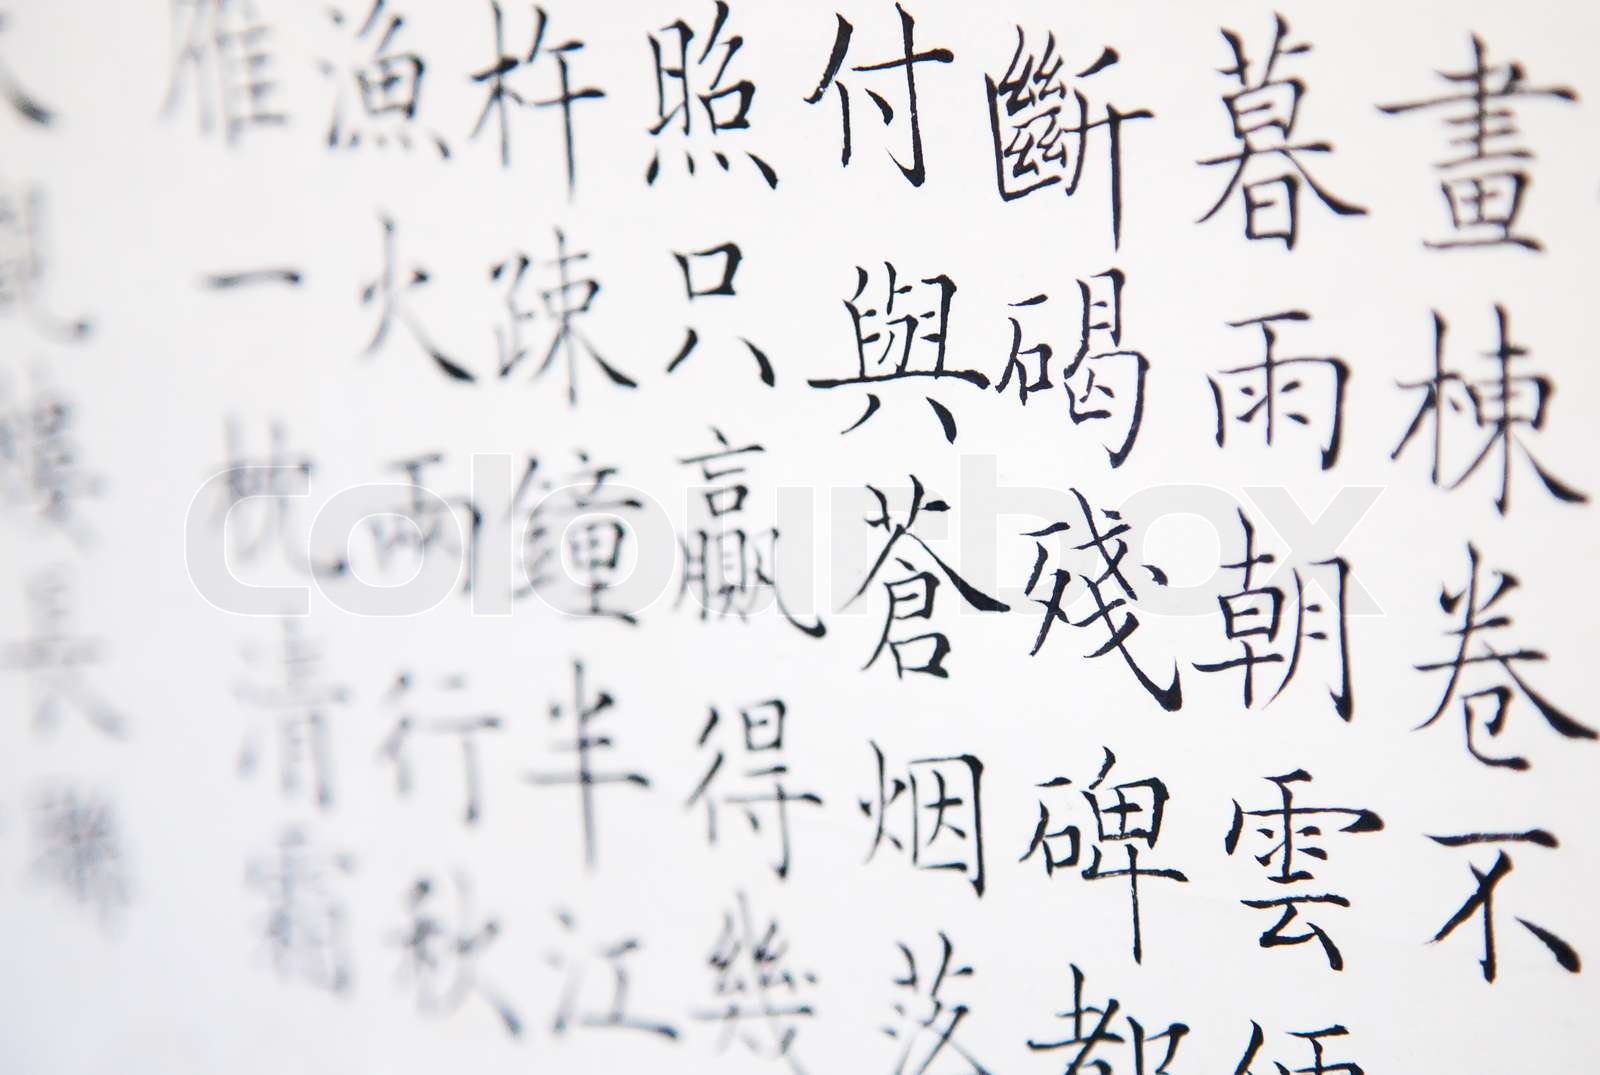 畫棟卷不
暮雨朝雲便
斷碣殘碑都
付與蒼烟落
照只贏得幾
杵疎鐘半江
漁火兩行秋
雁一枕清霜
樓長聯
colourbox